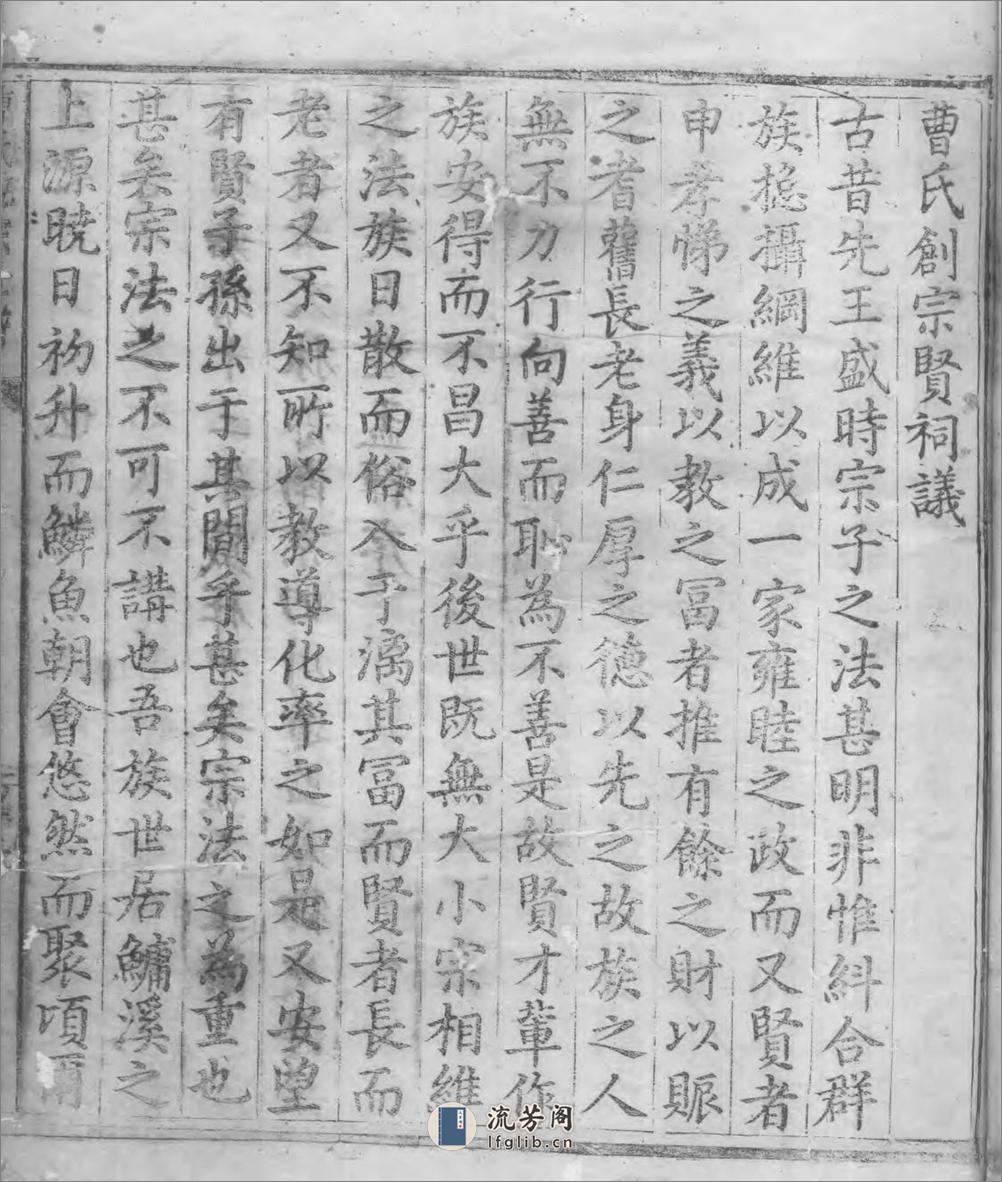 曹氏創宗賢祠議
古昔先王盛時宗子之法甚明非惟糾合群
族揔攝綱維以成一家雍睦之政而又賢者
申孝悌之義以教之冨者推有餘之財以賑
之耆舊長老身仁厚之德以先之故族之人
無不力行向善而恥為不善是故賢才軰作
族安得而不昌大乎後世既無大小宗相維
之法族日散而俗入于漓其冨而賢者長而
老者又不知所以教導化率之如是又安望
有賢子孫出于其間乎甚矣宗法之為重也
甚矣宗法之不可不講也吾族世居鱅溪之
上源曉日初升而鱗魚朝會悠然而聚頃爾
流芳阁
lfglib.cn